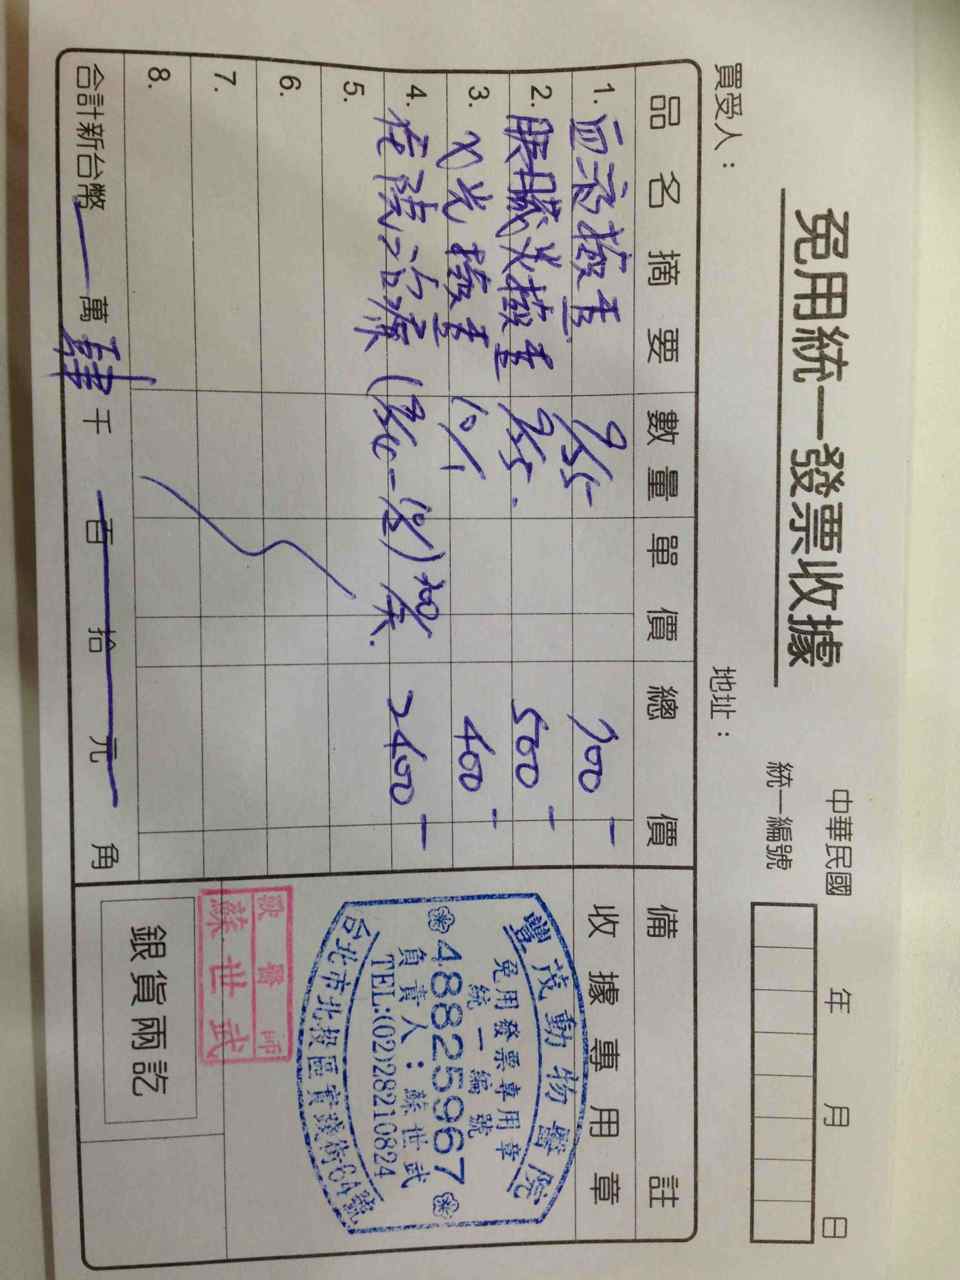 免用統一發票收據
中華民國 年 月 日
統一編號
買受人： 地址：
品名摘要 數量 單價 總價 備註
1. 血液檢查 9/25 700 -
2. 胰臟炎檢查 9/25. 500 -
3. X光檢查 10/1 400 -
4. 住院治療 天. 2400 -
5.
6.
7.
8.
合計新台幣 萬 肆 千 百 拾 元 角
收據專用章
豐茂動物醫院
免用發票專用章
統一編號
48825967
負責人：蘇世武
TEL:(02)28210824
台北市北投區實踐街64號
獸醫師
蘇世武
銀貨兩訖